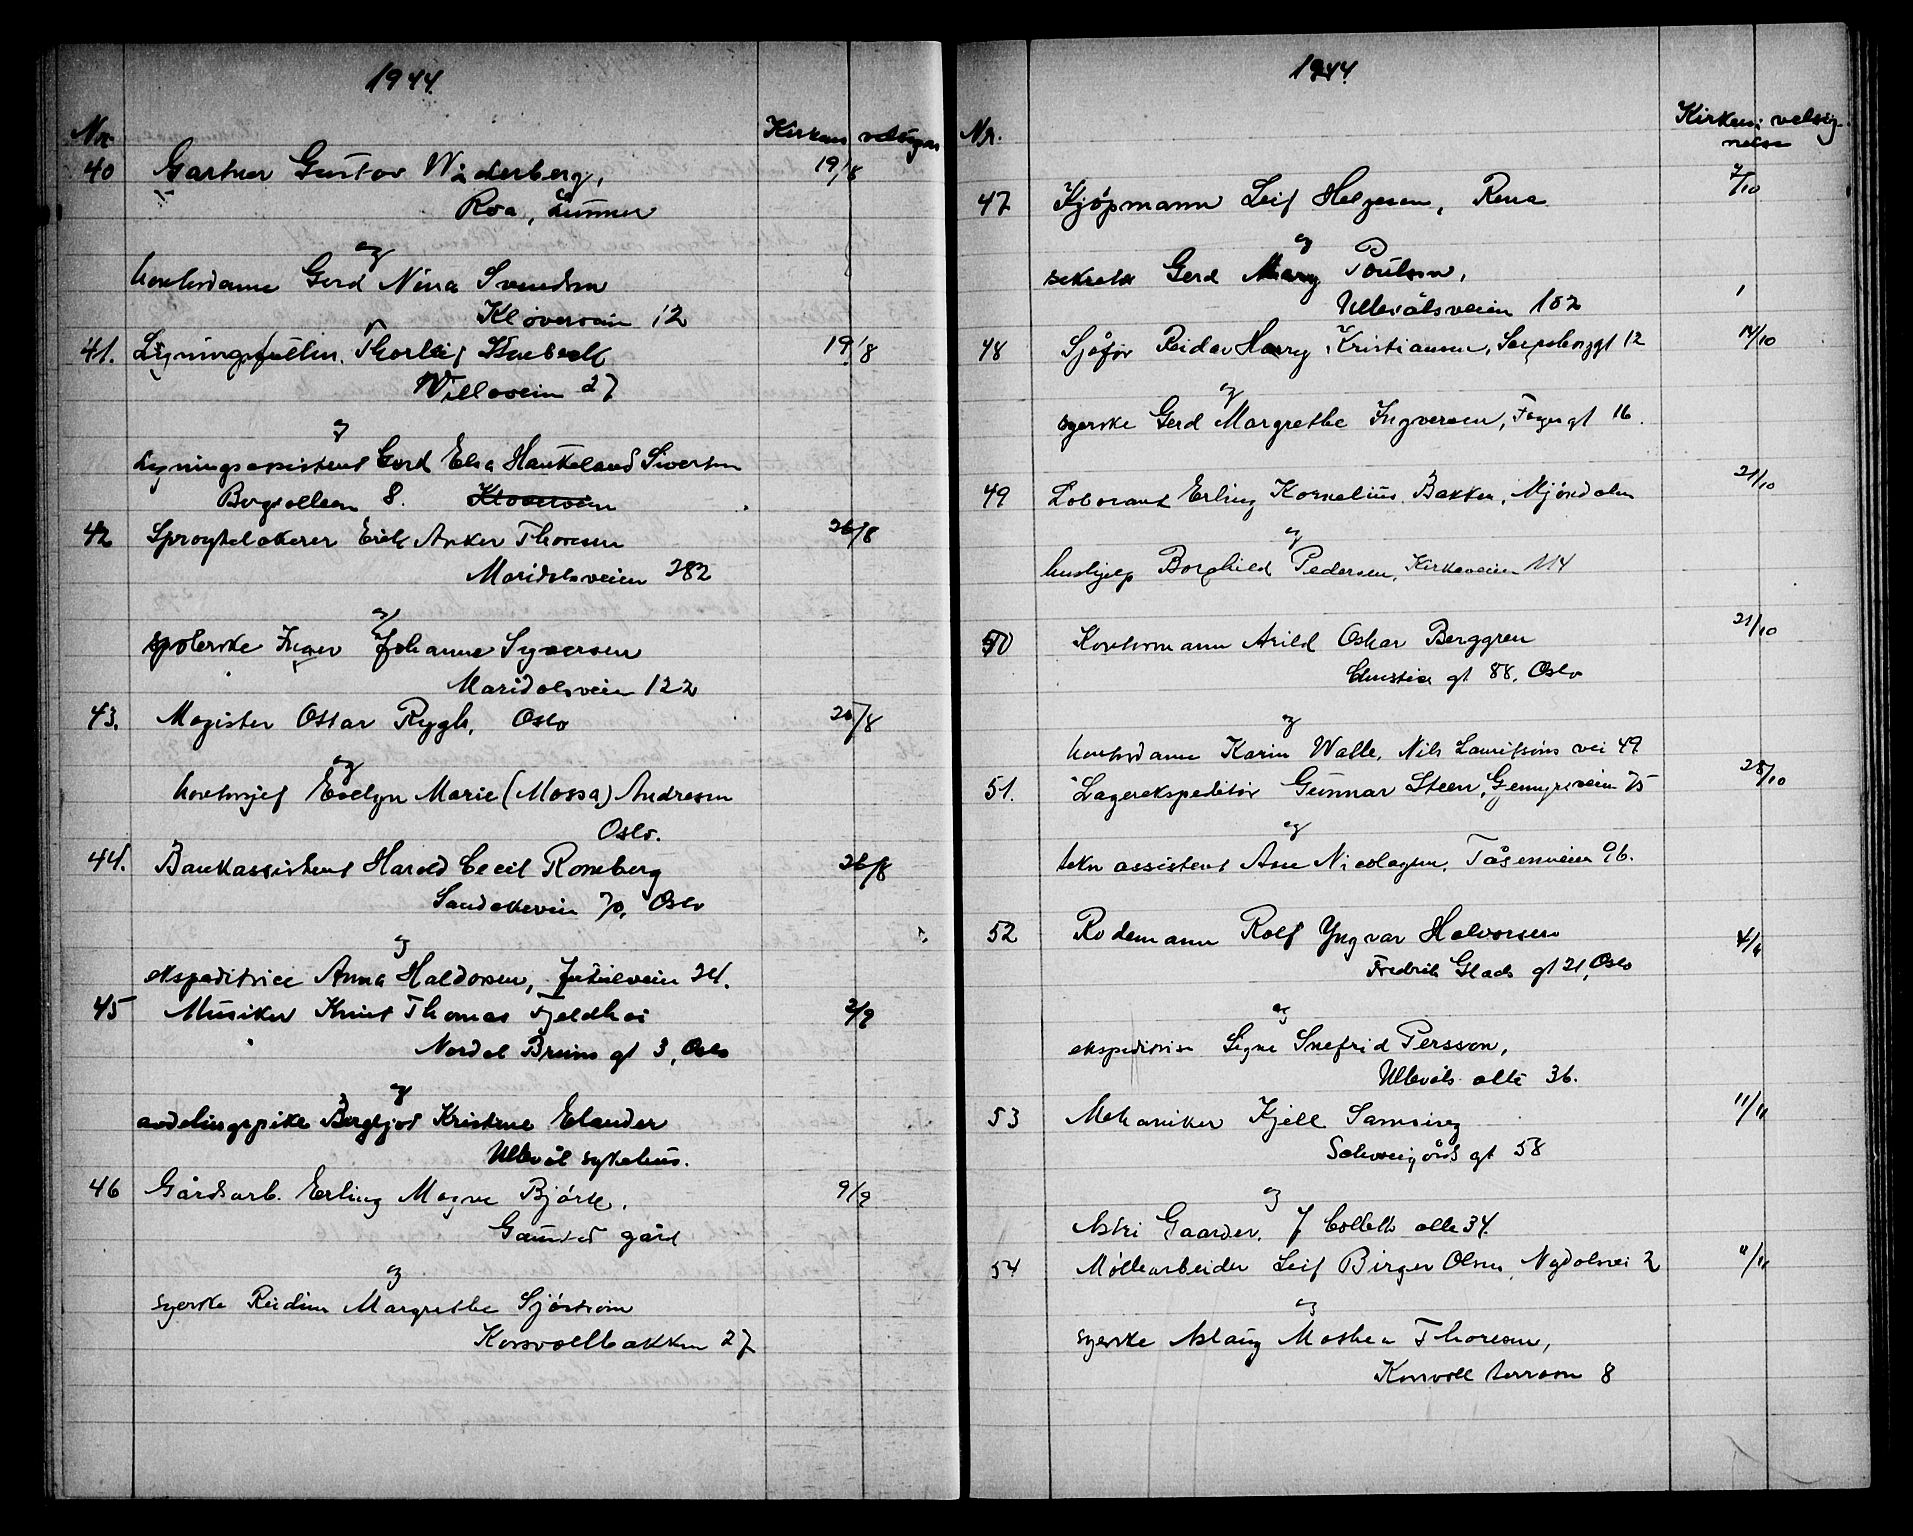 1944.
Nr. Kirkens velsignelse
40 Gartner Gustav Widerberg, 19/8
Roa, Lunner
og
kontordame Gerd Nina Svendsen
Kløverveien 12
41. Ligningsfullm. Thorleif 19/8
Villaveien 27
og
Ligningsassistent Gerd Elsa Haukeland Sivertsen
Bergsalleen 8. Kløverveien
42 Sprøytelakerer Erik Anker Thoresen 26/8
Maridalsveien 282
og
spolerske Inger Johanne Syversen
Maridalsveien 122
43. Magister Ottar Rygh, Oslo 26/8
og
kontorsjef Evelyn Marie (Mossa) Andresen
Oslo.
44. Bankassistent Harold Cecil Romberg 26/8
Sandakerveien 70, Oslo
og
ekspeditrice Anna Haldorsen, Jutulveien 24.
45 Musiker Knut Thomas Fjeldhoi 2/9
Nordal Bruns gt 3, Oslo
og
avdelingspike Bergljot Kristine Elander
Ullevål sykehus.
46 Gårdsarb. Erling Magne Bjørke, 9/9
Gaustad gård
og
syerske Reidun Margrethe Sjöström
Korsvollbakken 27
1944.
Nr. Kirkens velsignelse
47 Kjøpmann Leif Helgesen, Rena 7/10
og
sekretær Gerd Mary Poulsen,
Ullevålsveien 102
48 Sjåfør Reidar Harry Kristiansen, Sarpsborggt 12 14/10
og
syerske Gerd Margrethe Ingversen, Fagergt 16.
49 Laborant Erling Kornelius Bakken, Mjøndalen 21/10
og
hushjelp Borghild Pedersen, Kirkeveien 114
50 Kontormann Arild Oskar Berggren 21/10
gt 88, Oslo
og
kontordame Karin Walle, Nils Lauritsøns vei 49.
51. Lagerekspeditør Gunnar Steen, Grennyrsveien 75 28/10
og
tekn assistent Åse Nicolaysen, Tåsenveien 96.
52 Rodemann Rolf Yngvar Halvorsen 4/11
Fredrik Glads gt 21, Oslo
og
ekspeditrise Signe Snefrid Persson,
Ullevåls alle 36.
53 Mekaniker Kjell Samsing 11/11
Schweigårds gt 58
og
Astri Gaarder, J Colletts alle 34.
54 Møllearbeider Leif Birger Olsen, Nydalsvei 2 11/11
og
syerske Aslaug Mathea Thoresen,
Korsvoll terrasse 8